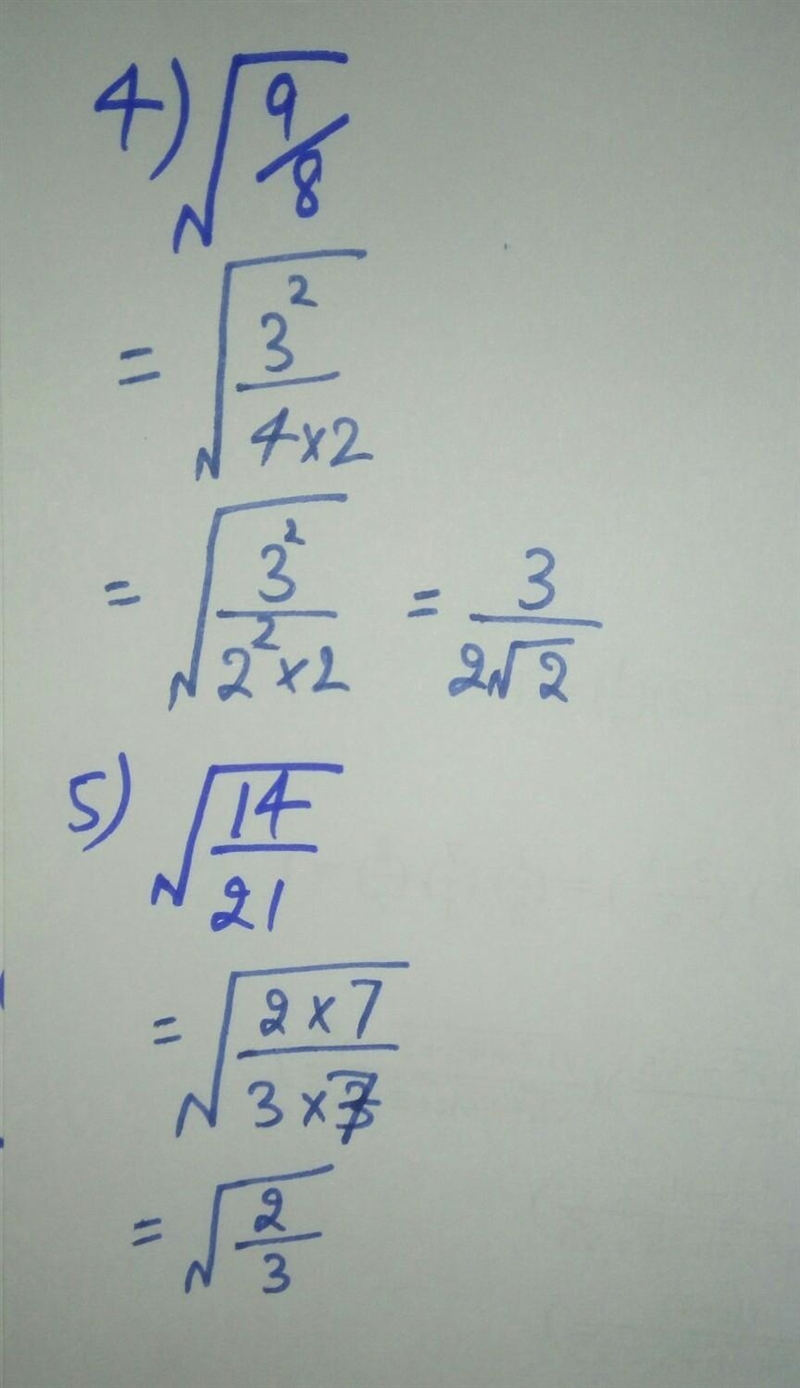 4) √(9/8)
= √(3²/(4×2))
= √(3²/(2²×2)) = 3/(2√2)
5) √(14/21)
= √((2×7)/(3×7))
= √(2/3)